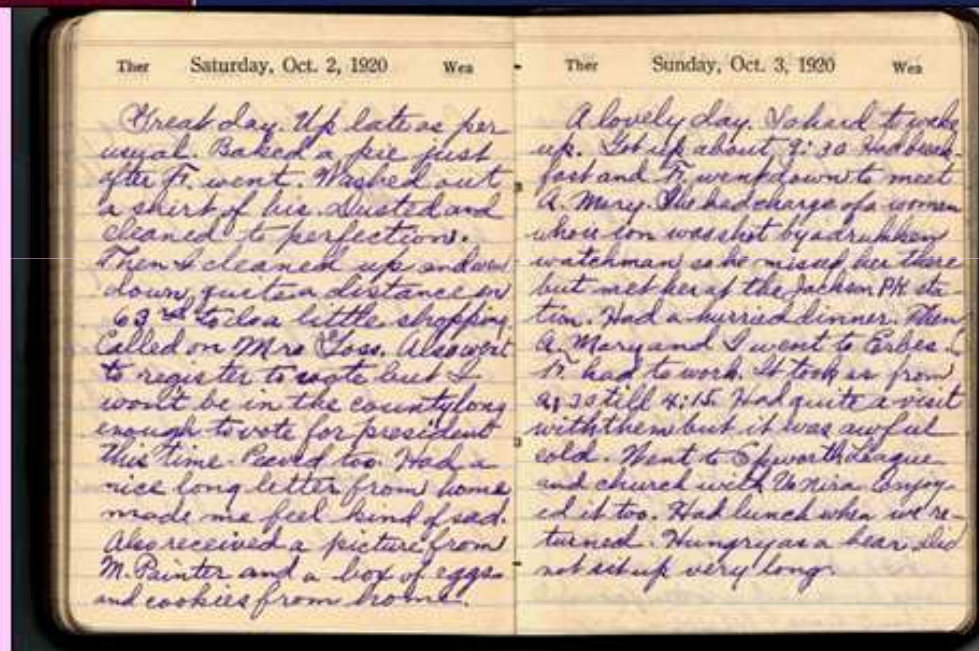 Ther Saturday, Oct. 2, 1920 Wea
Great day. Up late as per
usual. Baked a pie just
after Fr. went. Washed out
a shirt of his. Dusted and
cleaned to perfection.
Then I cleaned up and went
down quite a distance on
63rd to do a little shopping.
Called on Mrs Goss. Also went
to register to vote but I
won't be in the county long
enough to vote for president
this time. Peeved too. Had a
nice long letter from home
made me feel kind of sad.
Also received a picture from
M. Painter and a box of eggs
and cookies from home.
Ther Sunday, Oct. 3, 1920 Wea
A lovely day. So hard to wake
up. Got up about 9:30 Had break-
fast and Fr. went down to meet
A. Mary. She had charge of a women
whose son was shot by a drunken
watchman so he missed her there
but met her at the Jackson Pk sta-
tion. Had a hurried dinner. Then
A. Mary and I went to Erbes.
Fr. had to work. It took us from
till 4:15. Had quite a visit
with them but it was awful
cold. Went to Epworth League
and church with Enjoy-
ed it too. Had lunch when we re-
turned. Hungry as a bear. Did
not sit up very long.